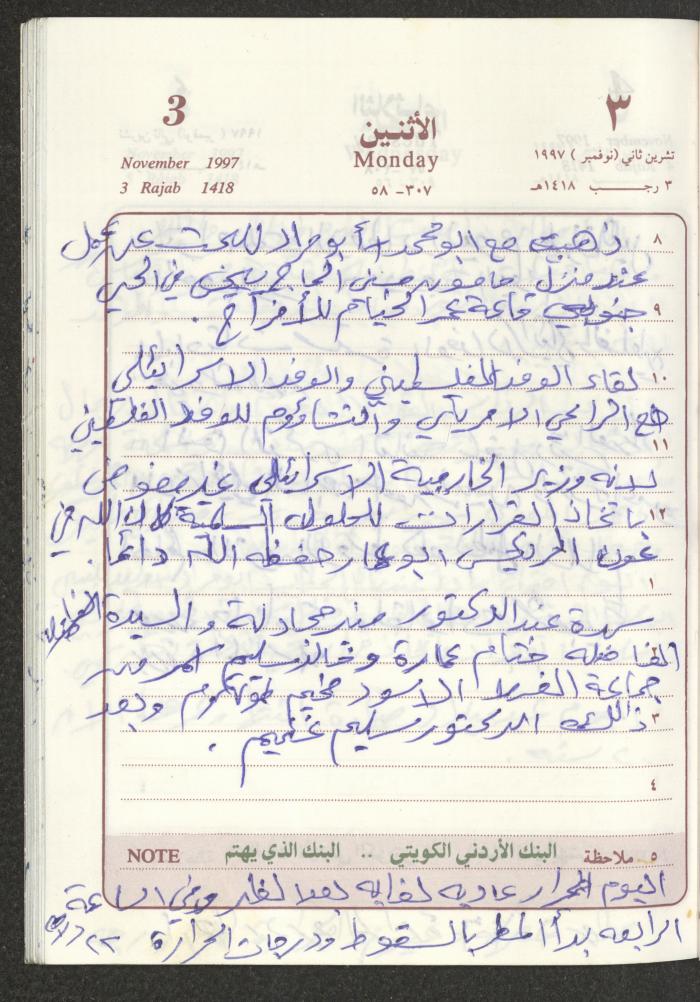 3
November 1997
3 Rajab 1418
الأثنين
Monday
٣٠٧-٥٨
٣
تشرين ثاني (نوفمبر) ١٩٩٧
٣ رجب ١٤١٨هـ
٨
ذهبت مع ابو محمد أبو مراد للبحث عن
عند منزل مامون حسني الحاج في الحي
٩
جنوبي قاعة عمر الخيام للأفراح .
١٠
لقاء الوفد الفلسطيني والوفد الاسرائيلي
مع الراعي الامريكي والتشاؤم للوفد الفلسطيني
١١
لانه وزير الخارجية الاسرائيلي غير مفوض
١٢
باتخاذ القرارات للحلول السلمية كان الله في
عون الرئيس ابو عمار حفظه الله دائما .
١
سهرة عند الدكتور منذر والسيدة
الفاضلة ختام عمارة وخالد سليم
جماعة الفهد الاسود مخيم وبعد
٣
ذالك الدكتور سليم .
٤
٥
ملاحظة
البنك الأردني الكويتي .. البنك الذي يهتم
NOTE
اليوم الحرار عاديه لغايه بعد الظهر وفي الساعة
الرابعه بدأ المطر بالسقوط ودرجات الحرارة ٢٢